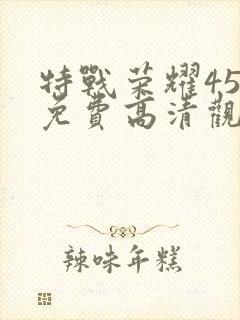 特戰荣耀45
免費高清觀
辣味年糕